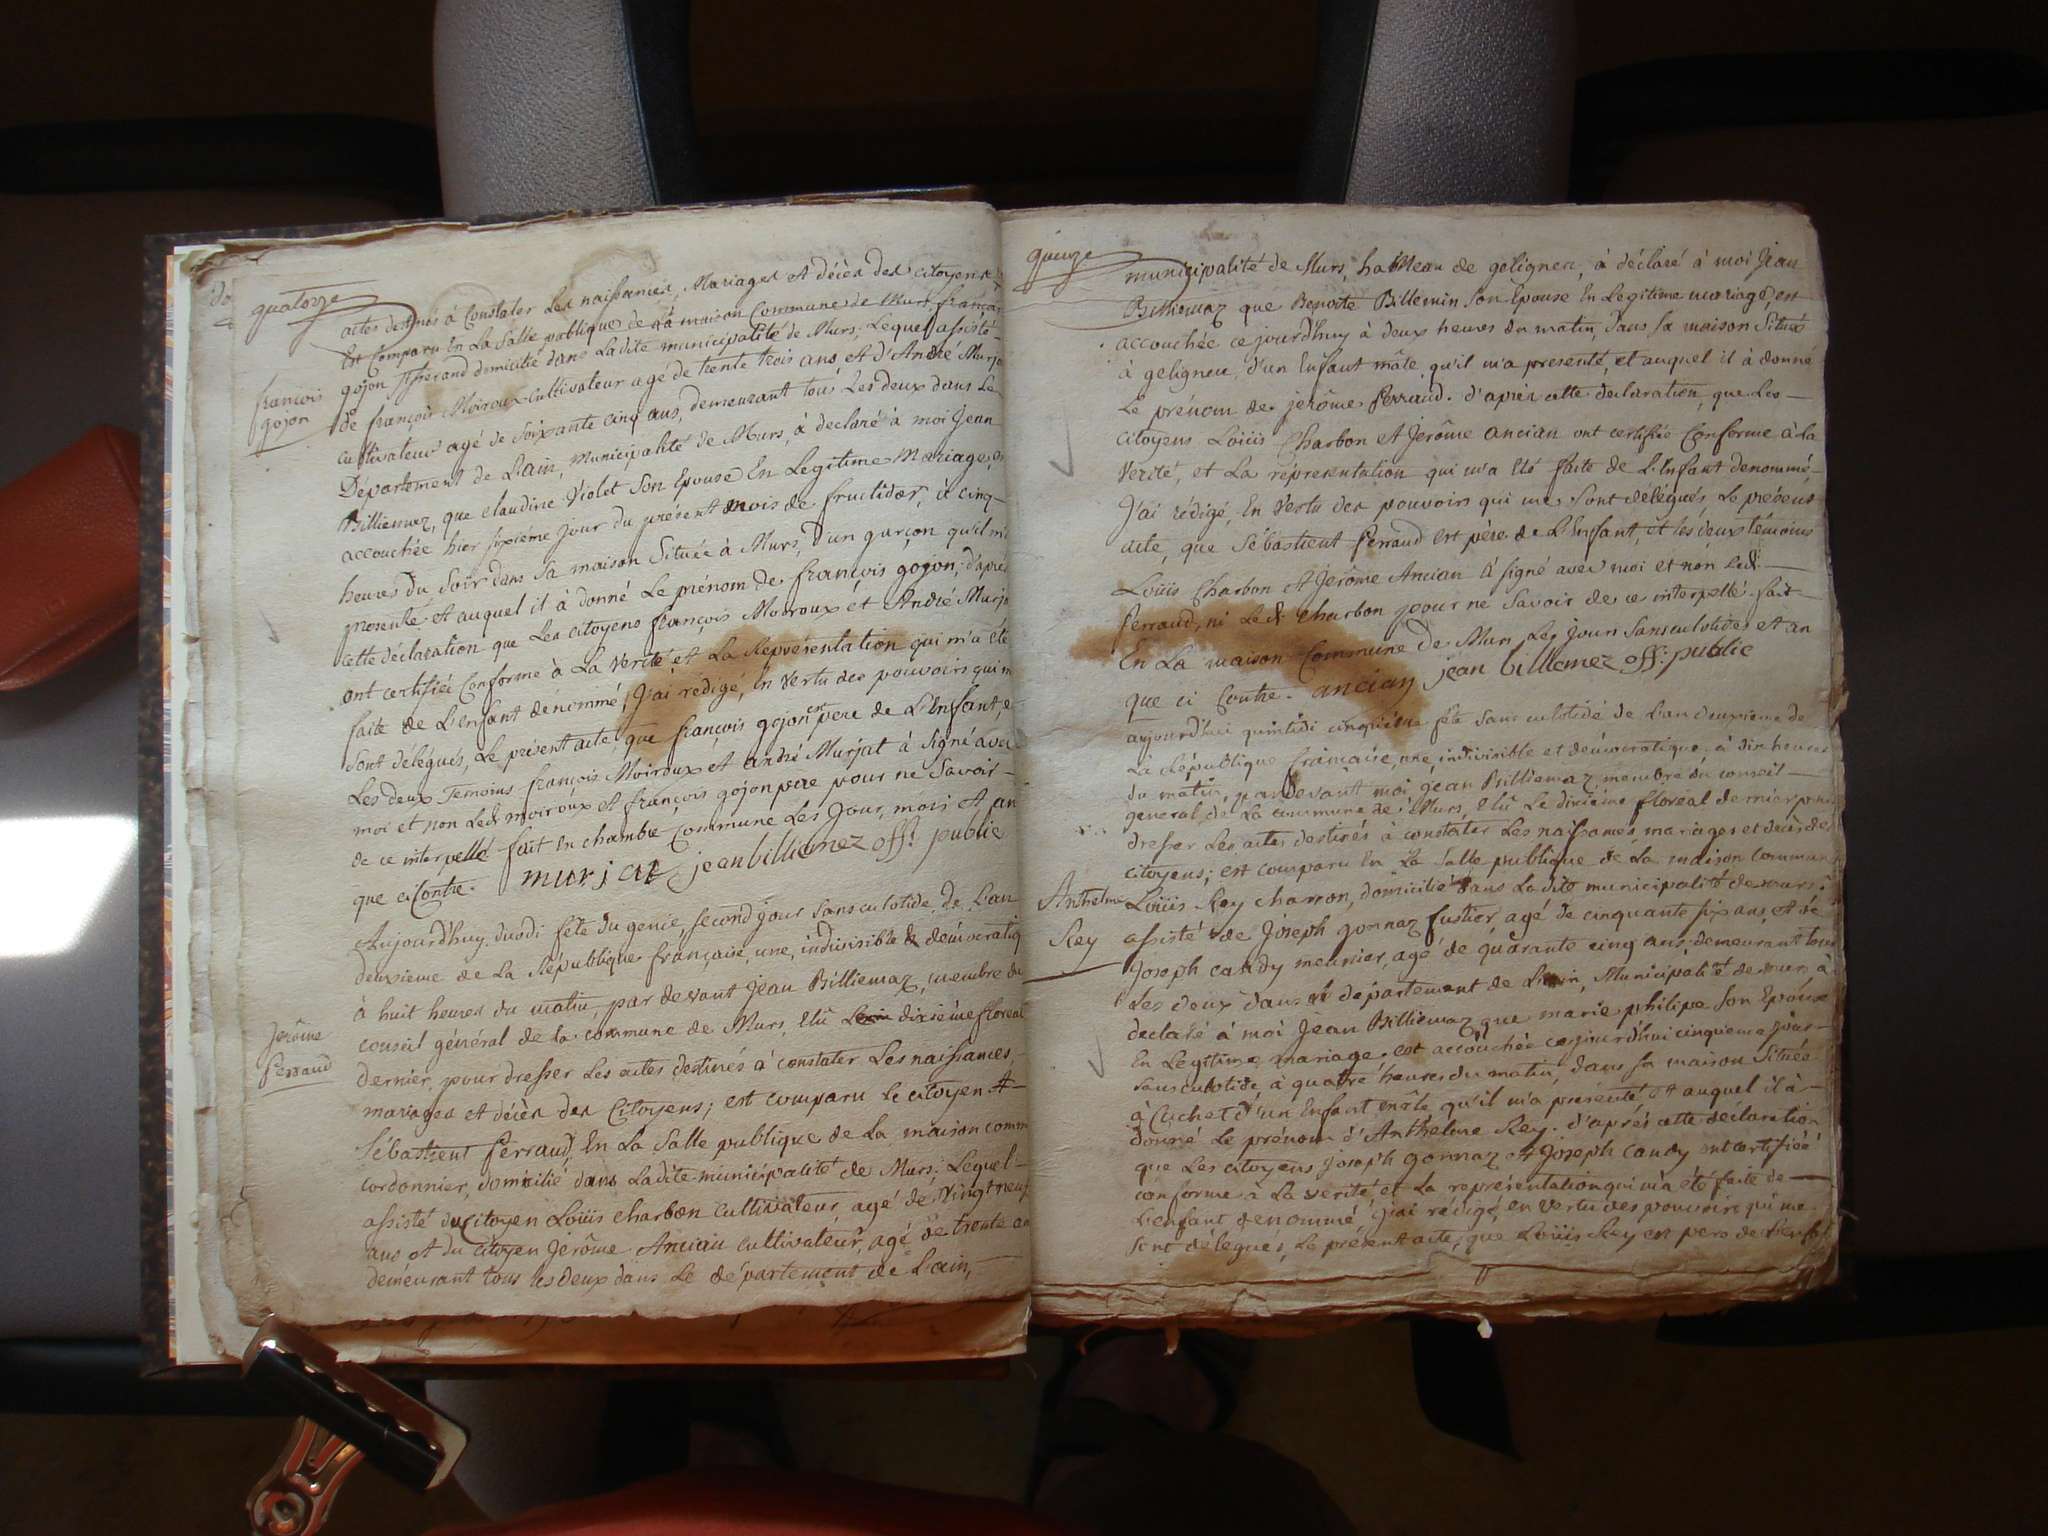 quatorze
actes destinés à Constater Les naissances, Mariages et décès des citoyens,
Est Comparu En La Salle publique de la maison Commune de Murs françois
gojon tisserand domicilié dans Ladite municipalité de Murs, Lequel assisté
françois
gojon
de françois Moiroux Cultivateur agé de trente trois ans Et d'André Murjat
cultivateur agé de soixante cinq ans, demeurant tous Les deux dans Le
Département de L'ain, Municipalité de Murs, à declaré à moi Jean
Billiemaz, que claudine Violet son Epouse En Legitime Mariage,
accouchée hier sixiéme jour du présent mois de fructidor, à cinq
heures du soir dans sa maison Située à Murs, d'un garçon qu'il m'a
presenté Et auquel il à donné Le prénom de françois gojon; d'après
cette déclaration que Les citoyens françois Moiroux et André Murjat
ont certifiée Conforme à La Verité et La Représentation qui m'a été
faite de L'enfant dénommé, J'ai rédigé, En vertu des pouvoirs qui me
sont délégués, Le présent acte que françois gojon est pere de L'Enfant,
Les deux Temoins françois Moiroux et andré Murjat à signé avec
moi et non Ledt moiroux et françois gojon pere pour ne Savoir
de ce interpellé fait En chambre Commune Les Jour, mois et an
que ci Contre. murjat jean billiemez off. public
Aujourd'huy duodi fête du genie, second jour sansculotide, de L'an
deuxieme de La République française, une, indivisible & démocratiq
à huit heures du matin, par devant Jean Billiemaz, membre du
conseil général de la commune de Murs, Elû dixiéme floréal
Jerôme
ferraud
dernier, pour dresser Les actes destinés à constater Les naissances,
mariages et décès des Citoyens; est comparu Le citoyen
Sébastient ferraud, En La Salle publique de La maison comm
cordonnier, domicilié dans Ladite municipalité de Murs; Lequel
assisté du Citoyen Loüis charbon cultivateur agé de Vingt neuf
ans et du citoyen Jerôme Ancian cultivateur, agé de trente an
demeurant tous les deux dans Le département de L'ain,
quinze
municipalité de Murs, hameau de geligneu, à déclaré à moi Jean
Billiemaz que Benoite Billemin son Epouse En Legitime mariage, est
accouchée cejourd'huy à deux heures du matin, dans sa maison Située
à geligneu, d'un Enfant mâle, qu'il m'a presenté, et auquel il à donné
Le prénom de jerôme ferraud. d'après cette declaration, que Les
Citoyens Loüis Charbon et Jerôme ancian ont certifiée Conforme à la
Verité, et La représentation qui m'a été faite de L'Enfant denommé,
J'ai rédigé, En Vertu des pouvoirs qui me sont délégués Le présent
acte, que Sébastient ferraud est père de L'Enfant, et les deux témoins
Loüis Charbon et Jerôme Ancian à signé avec moi et non Ledt
ferraud, ni Ledt Charbon pour ne Savoir de ce interpellé fait
En La maison Commune de Murs Les jours Sansculotides et an
que ci Contre. ancian jean billemez off: public
aujourd'hui quintidi cinquiéme fête sans culotide de L'an deuxieme de
La République française, une, indivisible et démocratique à dix heures
du matin, pardevant moi jean Billiemaz membre du conseil
general de La commune de Murs, Elû Le dixiéme floréal dernier pour
dresser Les actes destinés à constater Les naissances mariages et décès des
citoyens; est comparu En La Salle publique de La maison commun
Anthelme
Rey
Loüis Rey charron, domicilié dans Ladite municipalité de murs;
assisté de Joseph gonnaz fustier, agé de cinquante six ans, et de
Joseph candy meunier, agé de quarante cinq ans demeurant tous
Les deux dans Le département de L'ain, Municipalité de murs à
declaré à moi Jean Billiemaz que marie philipe son Epouse
En Legitime mariage est accouchée cejourd'hui cinquieme jour
Sansculotide à quatre heures du matin, dans sa maison Située
à Cuchet d'un Enfant mâle qu'il m'a présenté et auquel il à
donné Le prénom d'Anthelme Rey. d'après cette déclaration
que Les citoyens joseph gonnaz et joseph candy ont certifiée
conforme à La verité et La représentation qui m'a été faite de
L'enfant denommé, j'ai rédigé, en vertu des pouvoirs qui me
sont délégués, Le présent acte, que Loüis Rey est pere de L'enfant